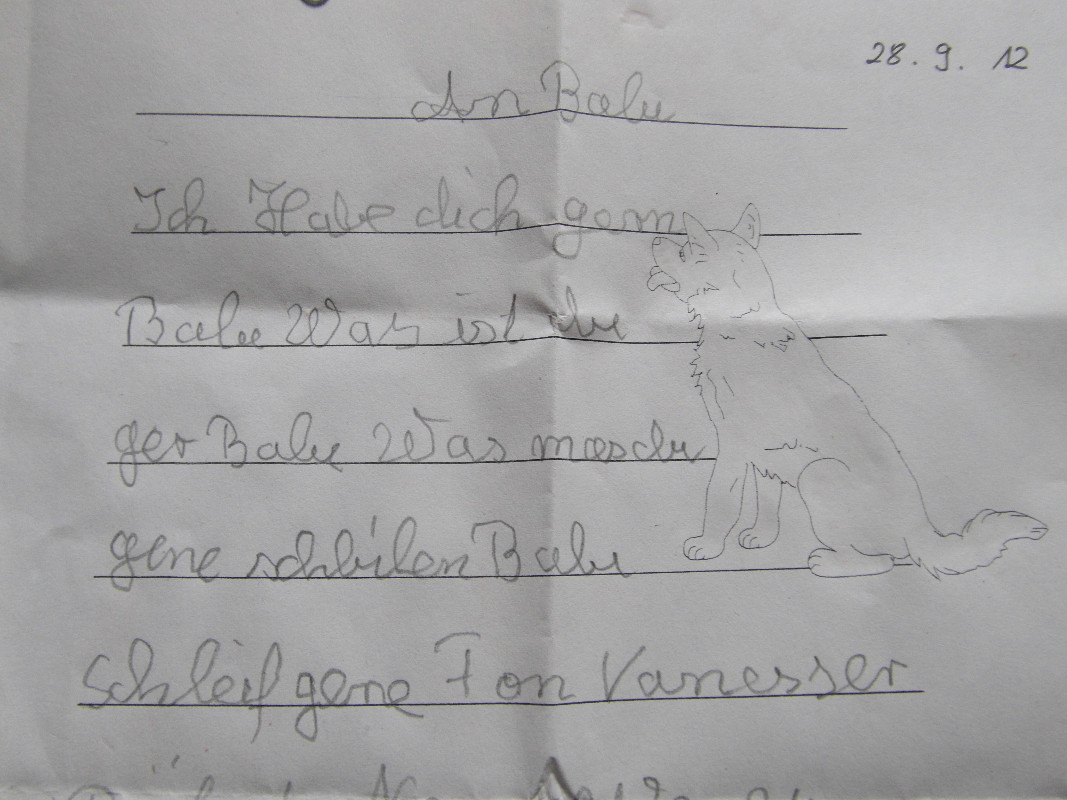 28. 9. 12
An Balu
Ich Habe dich gern
Balu Was ist du
ger Balu Was masdu
gene schbilen Balu
Schleif gene Fon Vanesser